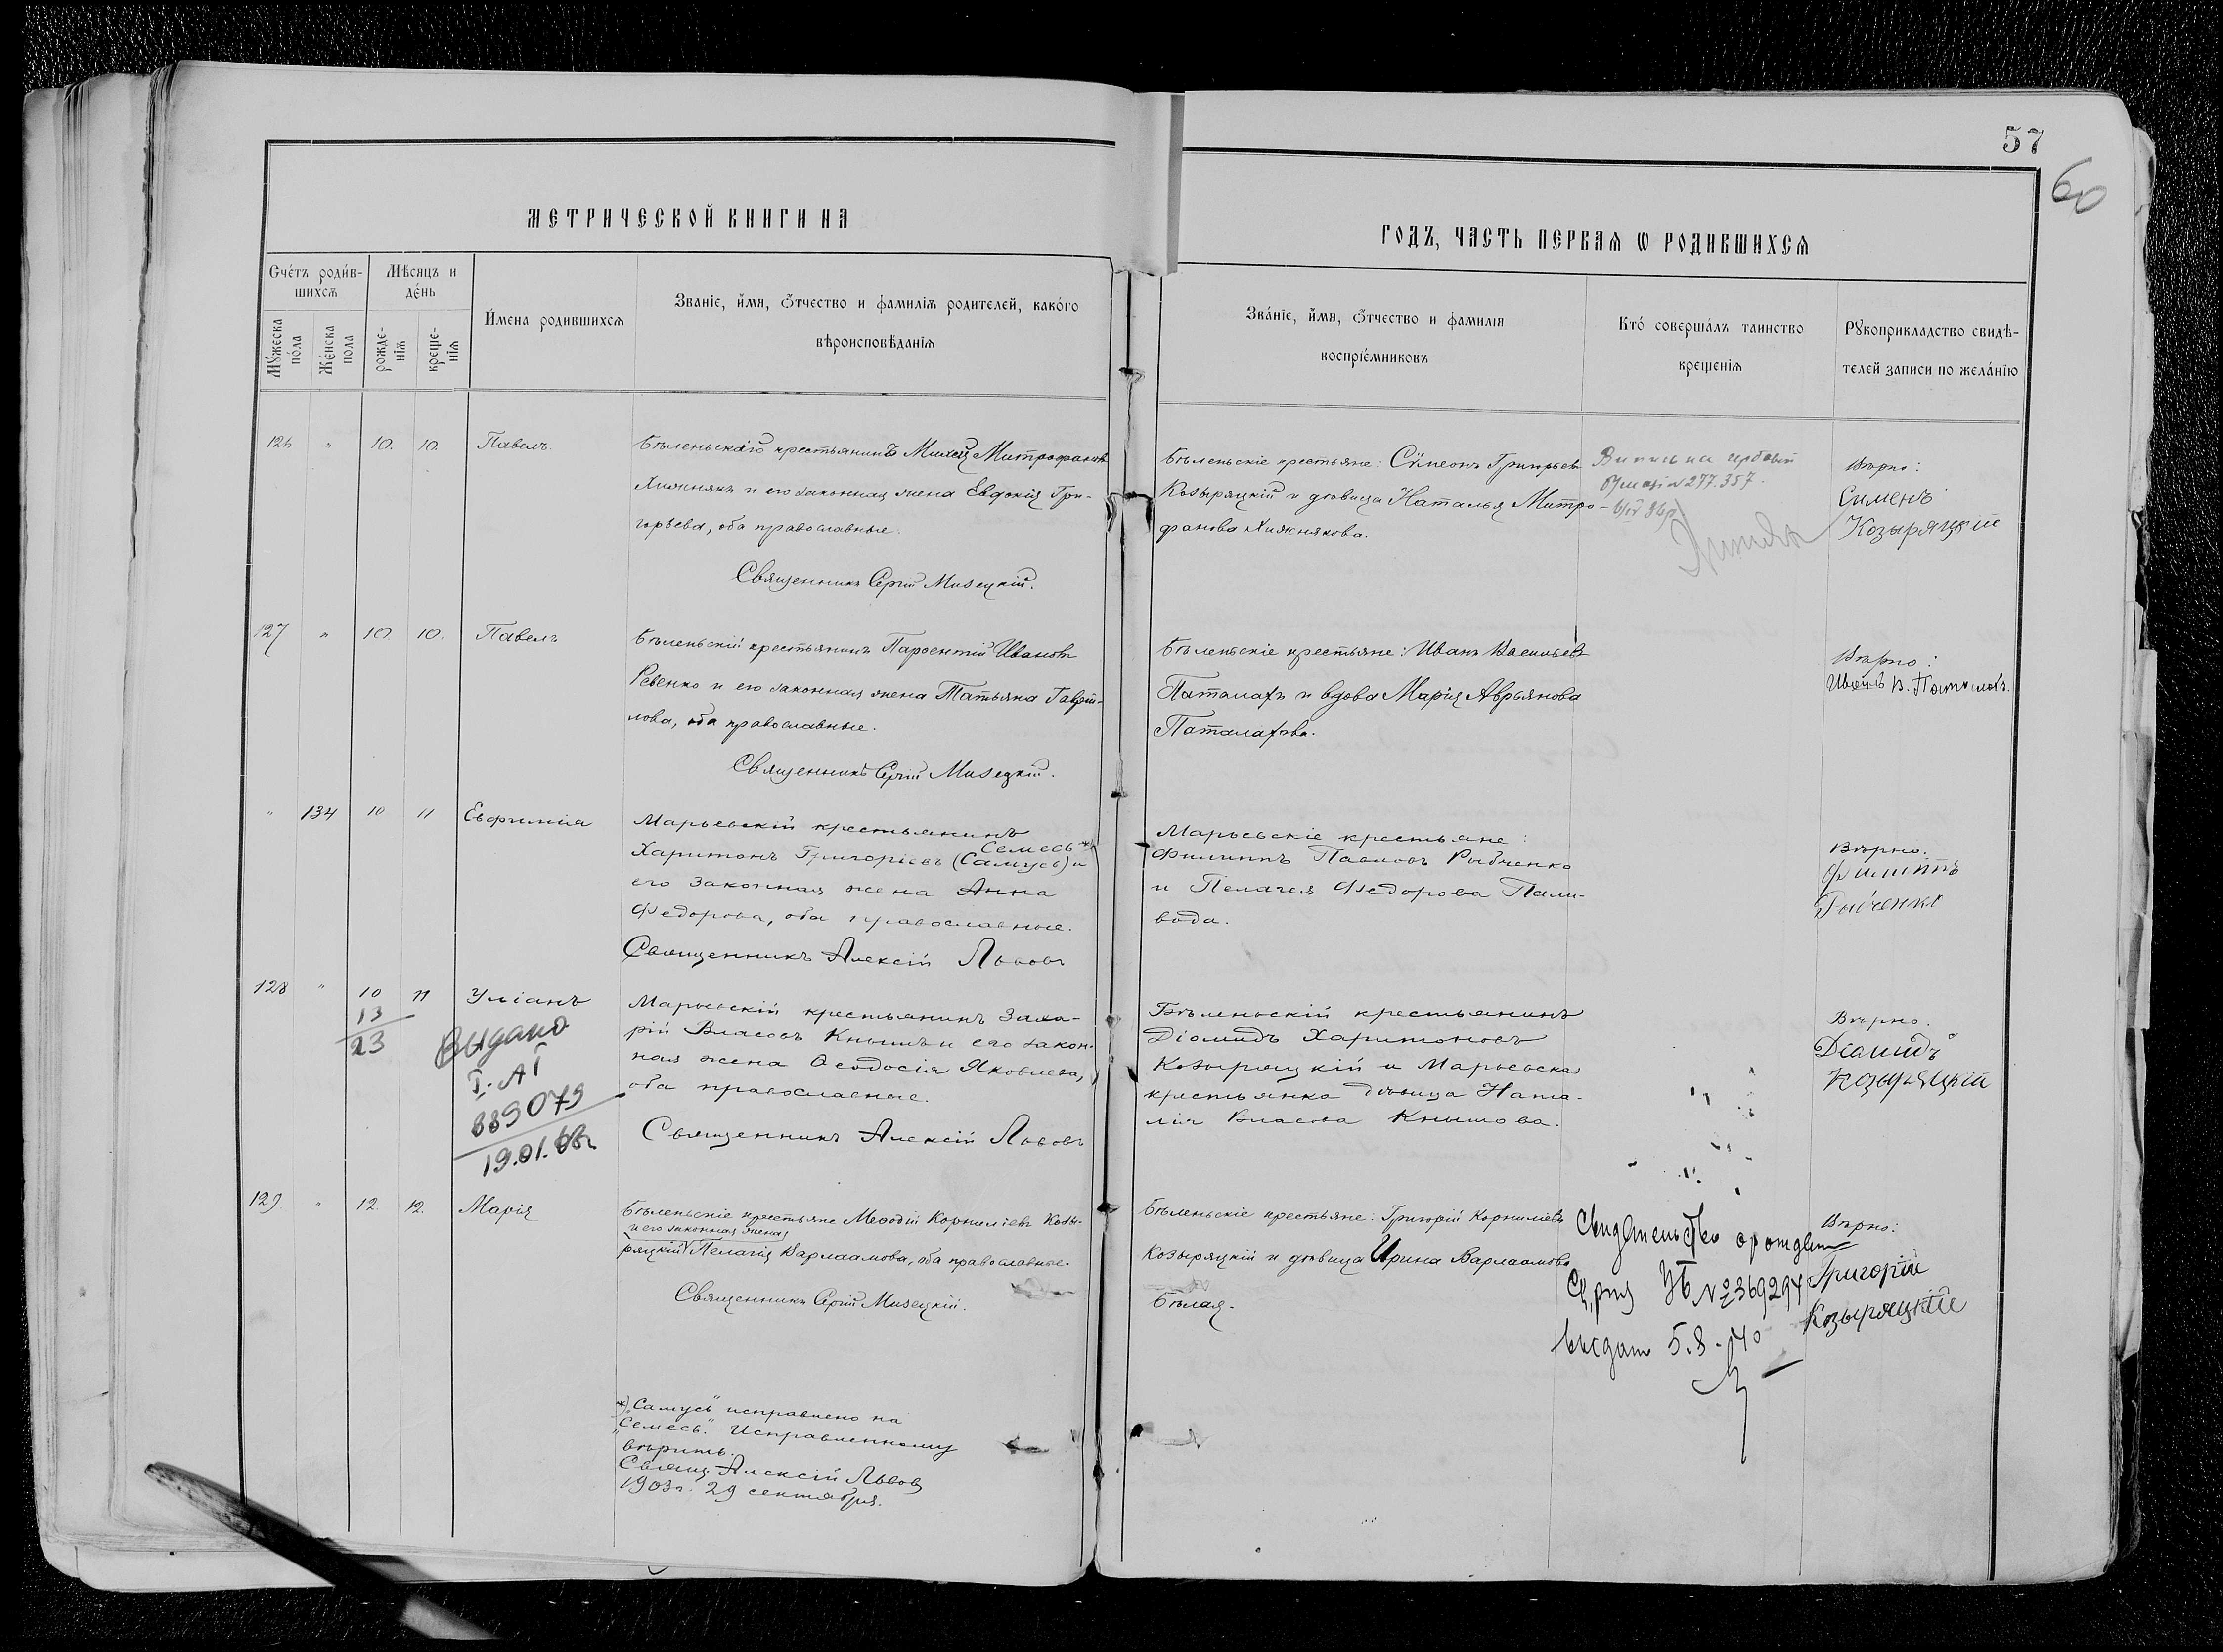 57
60
МЕТРИЧЕСКОЙ КНИГИ НА
ГОДЪ, ЧАСТЬ ПЕРВАЯ Ѡ РОДИВШИХСЯ
Счетъ родив-
шихсѧ
Мѣсяцъ и
день
Мужеска
пола
Женска
пола
рожде-
нїѧ
креще-
нїѧ
Имена родившихсѧ
Званїе, имя, Ѿчество и фамилїѧ родителей, какого
вѣроисповѣданїѧ
Званїе, имя, Ѿчество и фамилїя
воспрїемниковъ
Кто совершалъ таинство
крещенїѧ
Рукоприкладство свидѣ-
телей записи по желанїю
126 " 10. 10. Павелъ.
Бѣленьскаго крестьянинъ Михей Митрофановъ
Хижнякъ и его законная жена Евдокія Гри-
горьева, оба православные.
Священникъ Сергій Мизецкій.
Бѣленьскіе крестьяне: Сѵмеонъ Григорьевъ
Козыряцкій и дѣвица Наталья Митро-
фанова Хижнякова.
277.357
Вѣрно:
Сименъ
Козыряцкій
127 " 10. 10. Павелъ
Бѣленьскій крестьянинъ Парѳентій Ивановъ
Ревенко и его законная жена Татьяна Гаврі-
лова, оба православные.
Священникъ Сергій Мизецкій.
Бѣленьскіе крестьяне: Иванъ Васильевъ
Паталахъ и вдова Марія Аврьянова
Паталахова.
Вѣрно:
Иванъ В. Поталахъ.
" 134 10 11 Евфимія
Марьевскій крестьянинъ
Семесь *)
Харитонъ Григоріевъ (Самусь) и
его законная жена Анна
Федорова, оба православные.
Священникъ Алексій Львовъ
Марьевскіе крестьяне:
Филиппъ Павловъ Рыбченко
и Пелагея Федорова Пали-
вода.
Вѣрно.
Филиппъ
Рыбченко
128 " 10 11 Уліанъ
13
23
Выдано
I-АГ
889079
19.01.68г
Марьевскій крестьянинъ Заха-
рій Власовъ Кнышъ и его закон-
ная жена Ѳеодосія Яковлева,
оба православные.
Священникъ Алексій Львовъ
Бѣленьскій крестьянинъ
Діомидъ Харитоновъ
Козыряцкій и Марьевска
крестьянка дѣвица Ната-
лія Власова Кнышова.
Вѣрно.
Діомидъ
Козыряцкій
129. " 12. 12. Марія
Бѣленьскіе крестьяне Меѳодій Корниліевъ Козы-
и его законная жена
ряцкій Пелагія Варлаамова, оба православные.
Священникъ Сергій Мизецкій.
Бѣленьскіе крестьяне: Григорій Корниліевъ
Козыряцкій и дѣвица Ирина Варлаамова
Бѣлая.
Свидетельство о рожден
Серия УБ № 369294
выдано 5.8.40
Вѣрно:
Григорій
Козыряцкій
*) „Самусь" исправлено на
„Семесь". Исправленному
вѣрить.
Свящ. Алексій Львовъ
1903г. 29 сентября.